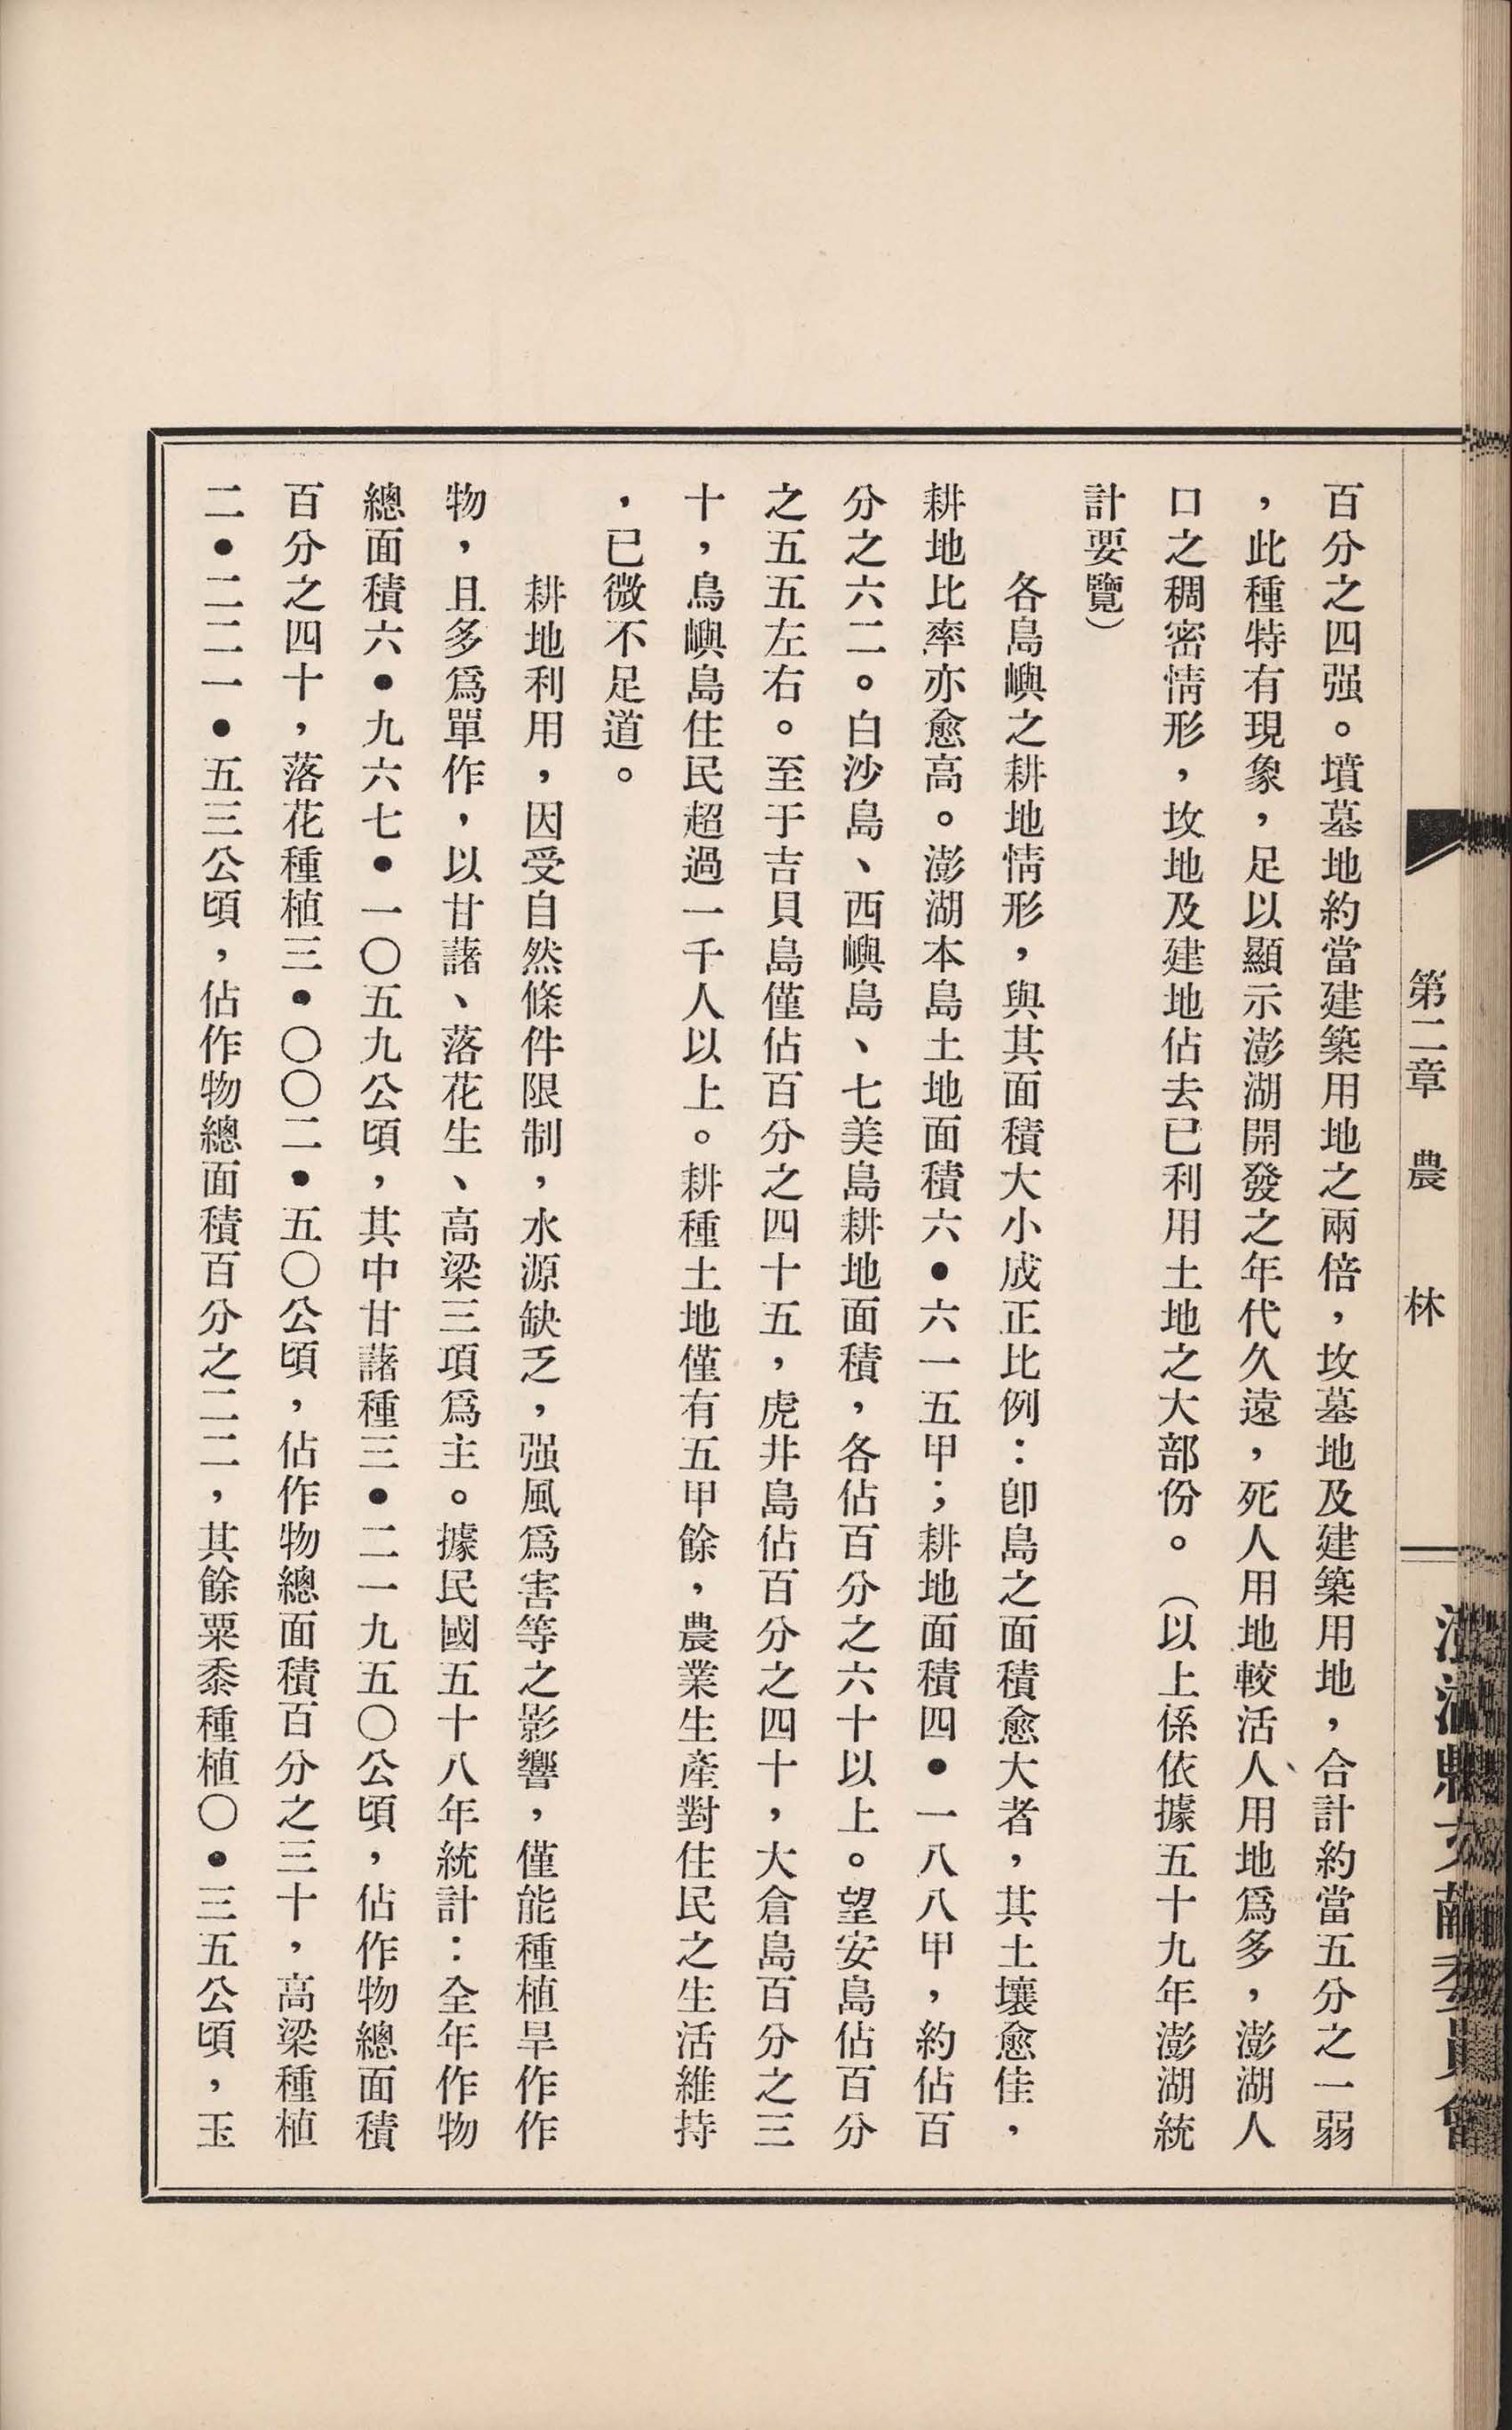 第二章　農　林
百分之四强。墳墓地約當建築用地之兩倍，坟墓地及建築用地，合計約當五分之一弱
，此種特有現象，足以顯示澎湖開發之年代久遠，死人用地較活人用地爲多，澎湖人
口之稠密情形，坟地及建地佔去已利用土地之大部份。（以上係依據五十九年澎湖統
計要覽）
各島嶼之耕地情形，與其面積大小成正比例：卽島之面積愈大者，其土壤愈佳，
耕地比率亦愈高。澎湖本島土地面積六●六一五甲；耕地面積四●一八八甲，約佔百
分之六二。白沙島、西嶼島、七美島耕地面積，各佔百分之六十以上。望安島佔百分
之五五左右。至于吉貝島僅佔百分之四十五，虎井島佔百分之四十，大倉島百分之三
十，鳥嶼島住民超過一千人以上。耕種土地僅有五甲餘，農業生產對住民之生活維持
，已微不足道。
耕地利用，因受自然條件限制，水源缺乏，强風爲害等之影響，僅能種植旱作作
物，且多爲單作，以甘藷、落花生、高梁三項爲主。據民國五十八年統計：全年作物
總面積六●九六七●一〇五九公頃，其中甘藷種三●二一九五〇公頃，佔作物總面積
百分之四十，落花種植三●〇〇二●五〇公頃，佔作物總面積百分之三十，高梁種植
二●二二一●五三公頃，佔作物總面積百分之二二，其餘粟黍種植〇●三五公頃，玉